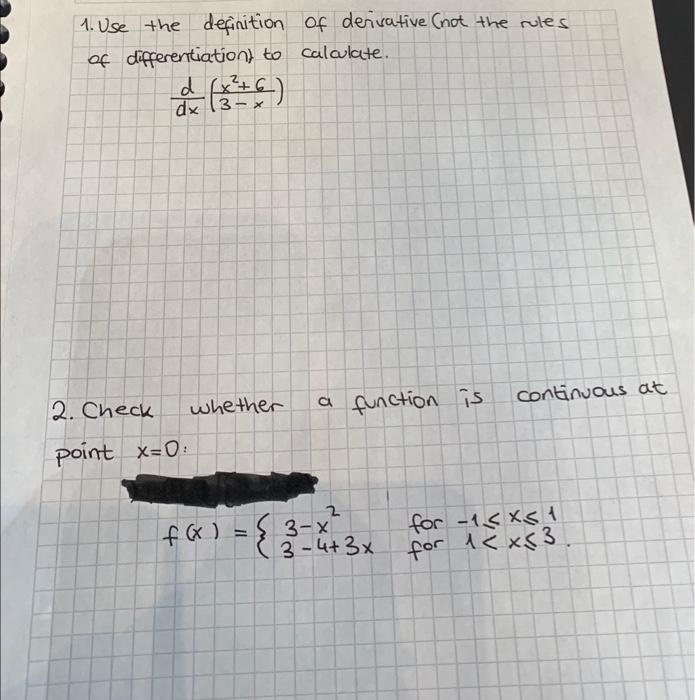 1. Use the definition of derivative (not the rules
of differentiation) to calculate.
d/dx (x²+6/3-x)
2. Check whether a function is continuous at
point x=0:
f(x) = { 3-x² for -1≤x≤1
3-4+3x for 1<x≤3.